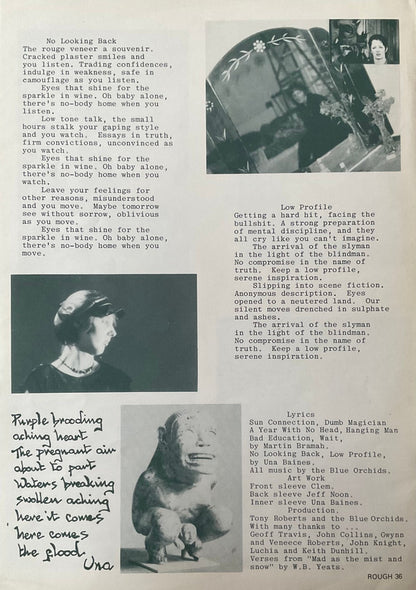 No Looking Back
The rough veneer a souvenir.
Cracked plaster smiles and
you listen. Trading confidences,
indulge in weakness, safe in
camouflage as you listen.
Eyes that shine for the
sparkle in wine. Oh baby alone,
there's no-body home when you
listen.
Low tone talk, the small
hours stalk your gaping style
and you watch. Essays in truth,
firm convictions, unconvinced as
you watch.
Eyes that shine for the
sparkle in wine. Oh baby alone,
there's no-body home when you
watch.
Leave your feelings for
other reasons, misunderstood
and you move. Maybe tomorrow
see without sorrow, oblivious
as you move.
Eyes that shine for the
sparkle in wine. Oh baby alone,
there's no-body home when you
move.
Low Profile
Getting a hard hit, facing the
bullshit. A strong preparation
of mental discipline, and they
all cry like you can't imagine.
The arrival of the slyman
in the light of the blindman.
No compromise in the name of
truth. Keep a low profile,
serene inspiration.
Slipping into scene fiction.
Anonymous description. Eyes
opened to a neutered land. Our
silent moves drenched in sulphate
and ashes.
The arrival of the slyman
in the light of the blindman.
No compromise in the name of
truth. Keep a low profile,
serene inspiration.
Purple brooding
aching heart
The pregnant air
about to part
Waters breaking
swollen aching
here it comes
here comes
the flood
Una
Lyrics
Sun Connection, Dumb Magician
A Year With No Head, Hanging Man
Bad Education, Wait,
by Martin Bramah.
No Looking Back, Low Profile,
by Una Baines.
All music by the Blue Orchids.
Art Work
Front sleeve Clem.
Back sleeve Jeff Noon.
Inner sleeve Una Baines.
Production.
Tony Roberts and the Blue Orchids.
With many thanks to ...
Geoff Travis, John Collins, Gwynn
and Veneece Roberts, John Knight,
Luchia and Keith Dunhill.
Verses from "Mad as the mist and
snow" by W.B. Yeats.
ROUGH 36